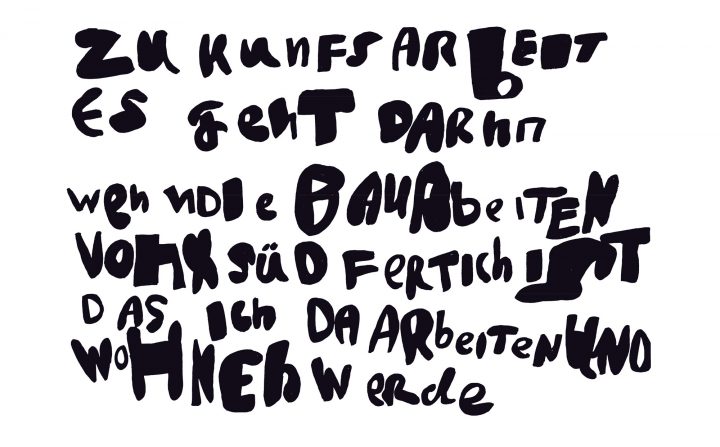 ZuKunFSARBEIT
ES gehT DARHn
weh nDIe BAUARbeiTEN
VOHX SÜD FERTICH IST
DAS Ich DA ARbeITENUND
WOHNEh werde